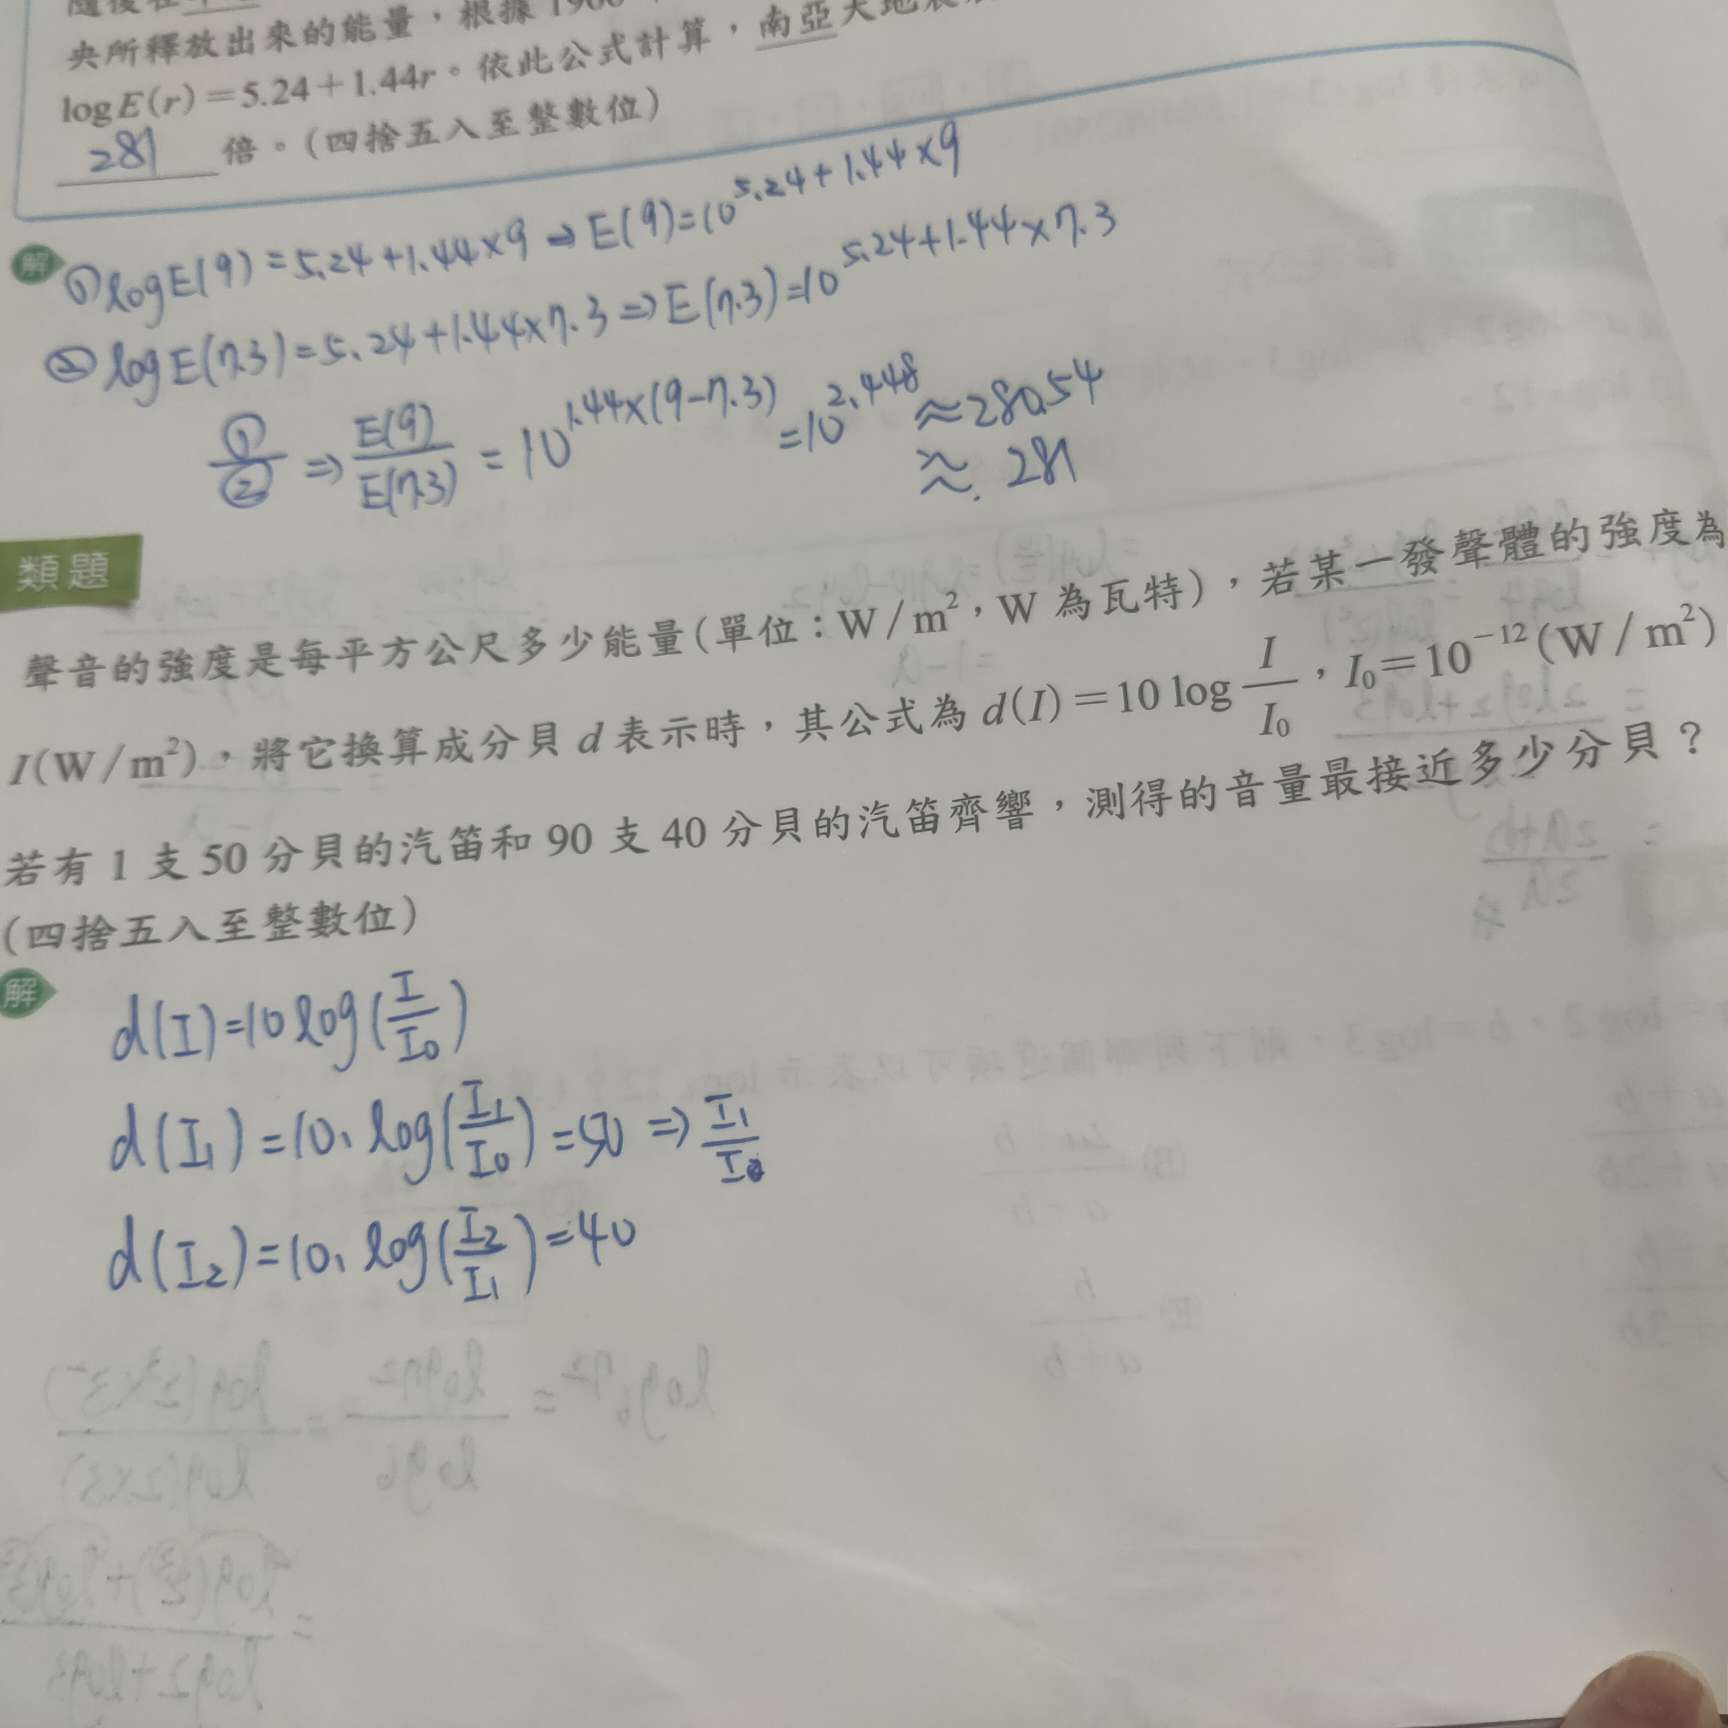 央所釋放出來的能量，根據
log E(r)＝5.24＋1.44r。依此公式計算，南亞大地震
281 倍。(四捨五入至整數位)
解 ①logE(9)=5.24+1.44×9⇒E(9)=10^5.24+1.44×9
②logE(7.3)=5.24+1.44×7.3⇒E(7.3)=10^5.24+1.44×7.3
①/② ⇒ E(9)/E(7.3) = 10^1.44×(9-7.3) =10^2.448 ≈280.54
≈ 281
類題
聲音的強度是每平方公尺多少能量(單位：W/m²，W 為瓦特)，若某一發聲體的強度為
I(W/m²)，將它換算成分貝 d 表示時，其公式為 d(I)＝10 log I/I₀，I₀＝10⁻¹²(W/m²)
若有 1 支 50 分貝的汽笛和 90 支 40 分貝的汽笛齊響，測得的音量最接近多少分貝？
(四捨五入至整數位)
解 d(I)=10log(I/I₀)
d(I₁)=10.log(I₁/I₀)=50⇒I₁/I₀
d(I₂)=10.log(I₂/I₁)=40